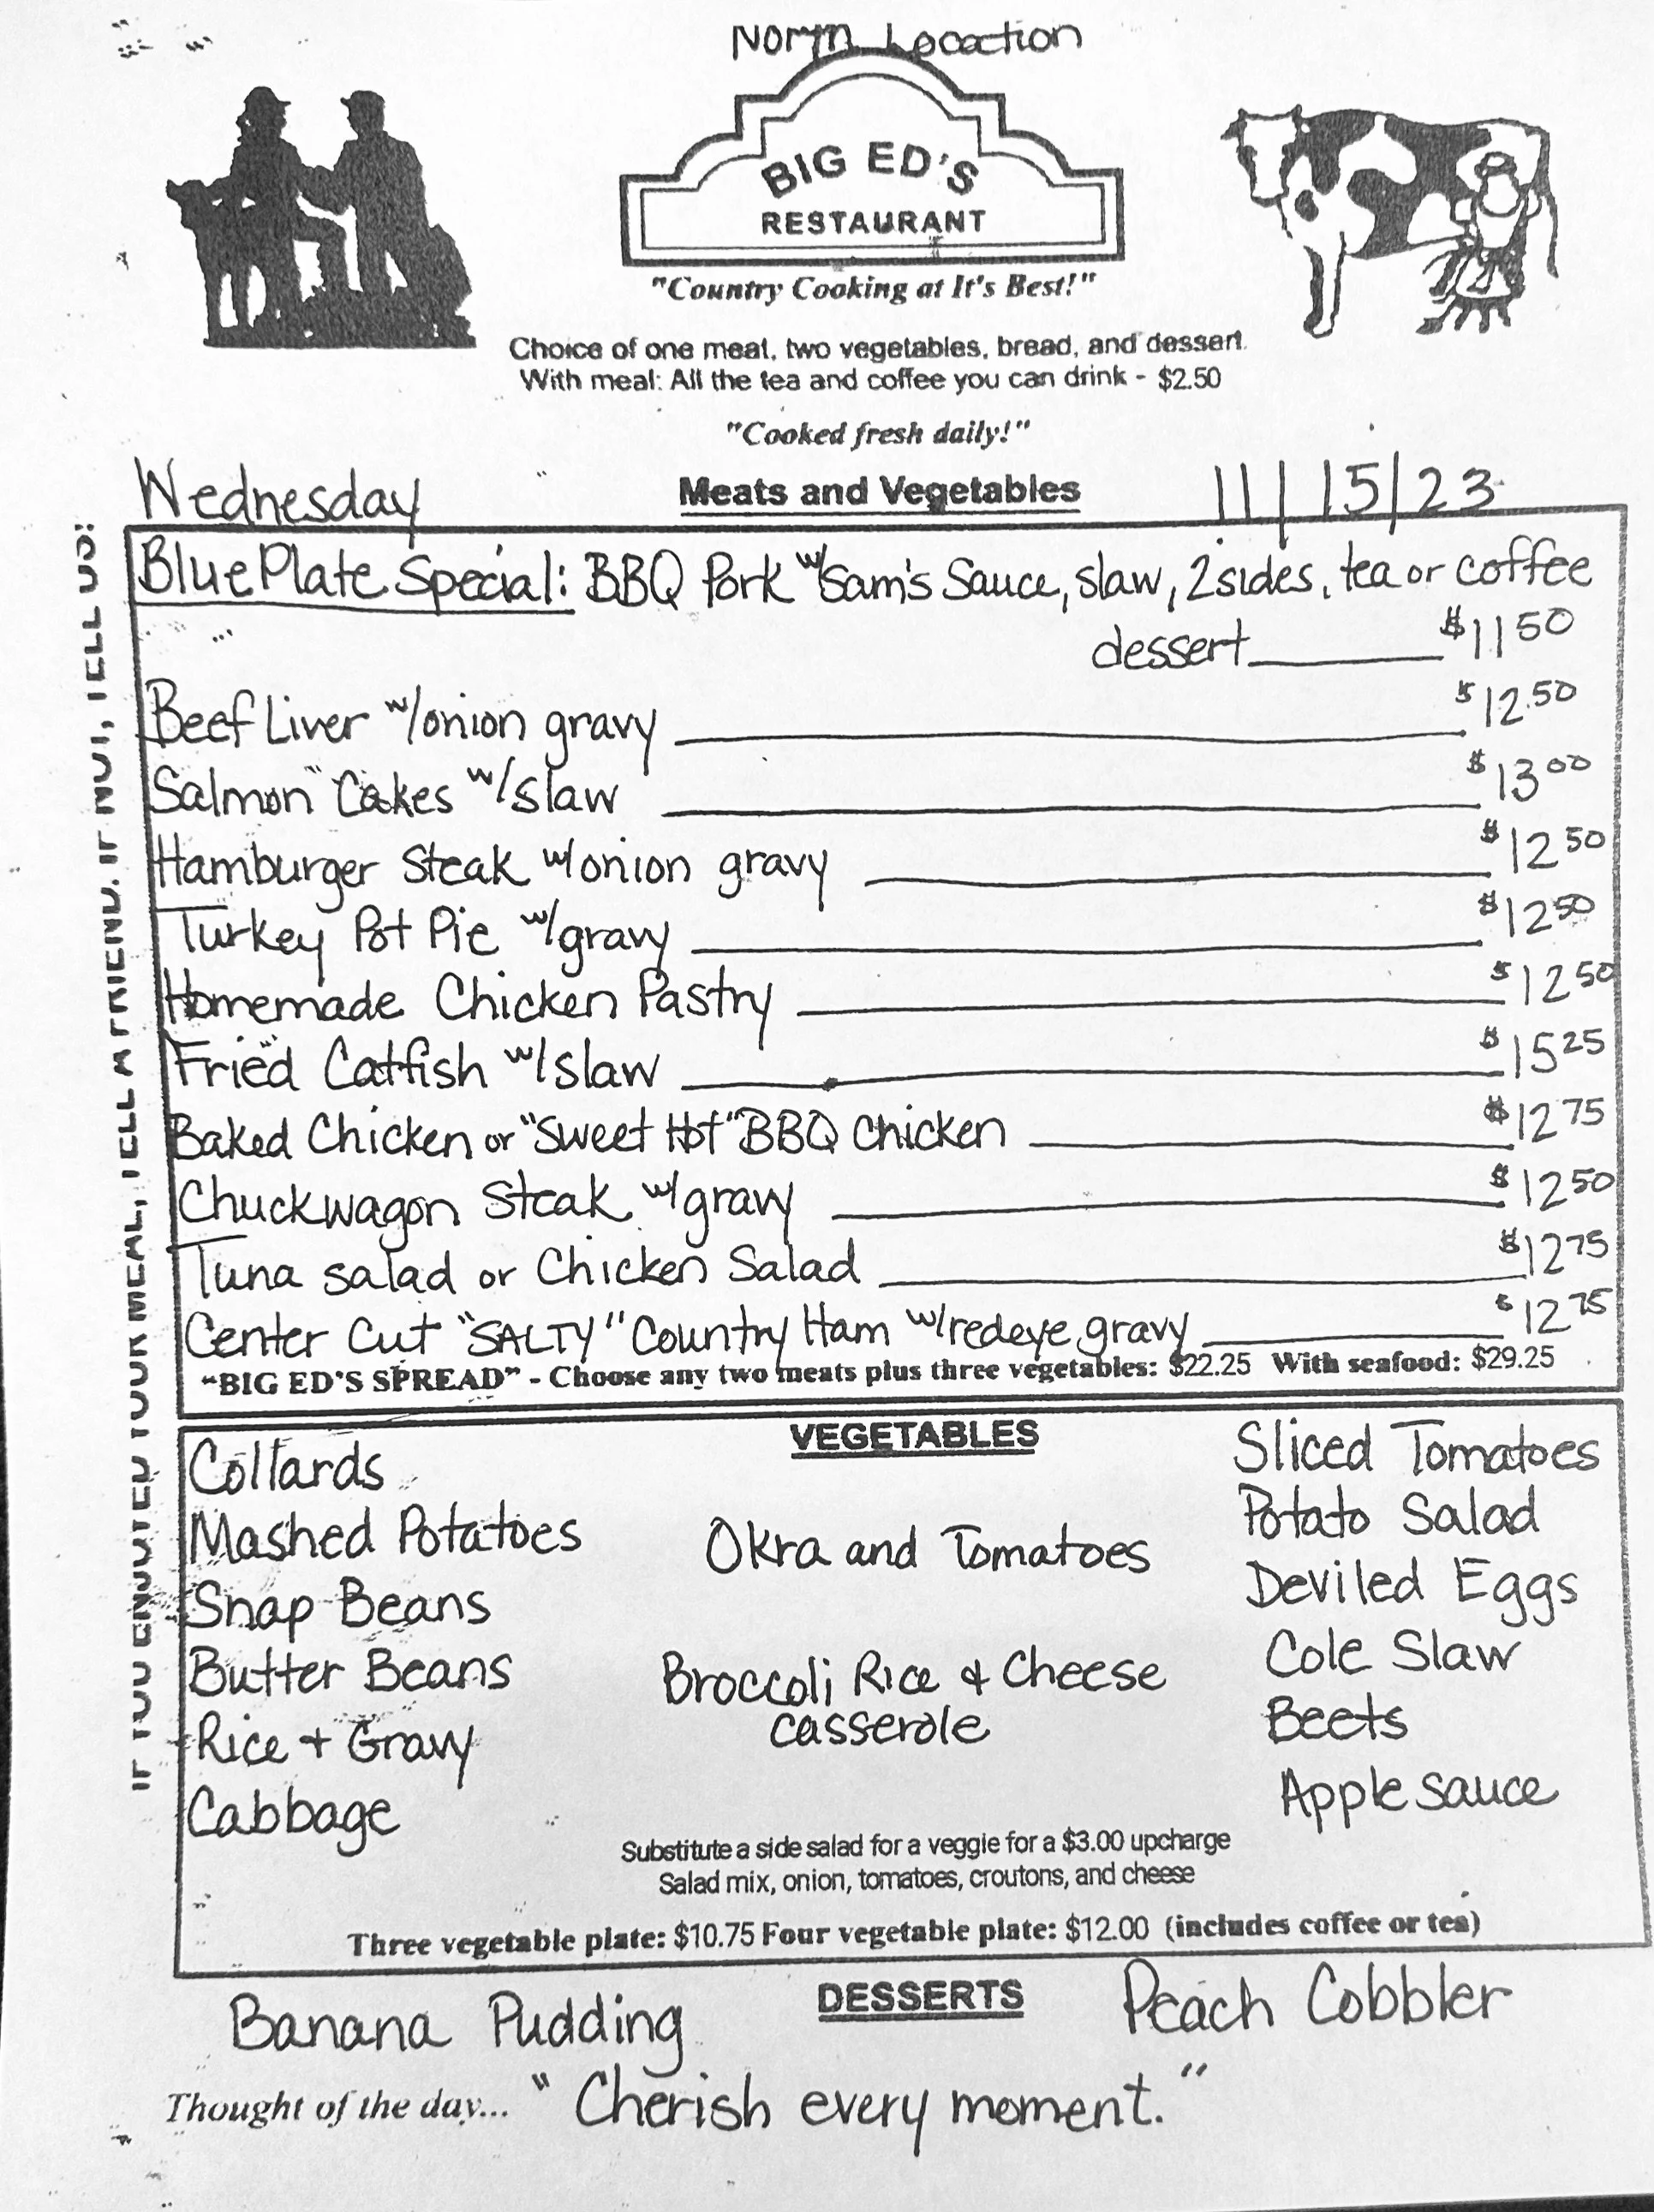 North Location
BIG ED'S
RESTAURANT
"Country Cooking at It's Best!"
Choice of one meat, two vegetables, bread, and dessert.
With meal: All the tea and coffee you can drink - $2.50
"Cooked fresh daily!"
Wednesday Meats and Vegetables 11/15/23
Blue Plate Special: BBQ Pork w/Sam's Sauce, slaw, 2 sides, tea or coffee
dessert $11 50
Beef Liver w/onion gravy $12.50
Salmon Cakes w/slaw $13 00
Hamburger Steak w/onion gravy $12 50
Turkey Pot Pie w/gravy $12 50
Homemade Chicken Pastry $12 50
Fried Catfish w/slaw $15 25
Baked Chicken or "Sweet Hot" BBQ Chicken $12 75
Chuckwagon Steak w/gravy $12 50
Tuna salad or Chicken Salad $12 75
Center Cut "SALTY" Country Ham w/redeye gravy $12 75
"BIG ED'S SPREAD" - Choose any two meats plus three vegetables: $22.25 With seafood: $29.25
VEGETABLES
Collards
Mashed Potatoes
Snap Beans
Butter Beans
Rice + Gravy
Cabbage
Okra and Tomatoes
Broccoli Rice & Cheese
casserole
Sliced Tomatoes
Potato Salad
Deviled Eggs
Cole Slaw
Beets
Apple sauce
Substitute a side salad for a veggie for a $3.00 upcharge
Salad mix, onion, tomatoes, croutons, and cheese
Three vegetable plate: $10.75 Four vegetable plate: $12.00 (includes coffee or tea)
DESSERTS
Banana Pudding
Peach Cobbler
Thought of the day... "Cherish every moment."
IF YOU ENJOYED YOUR MEAL, TELL A FRIEND. IF NOT, TELL US!